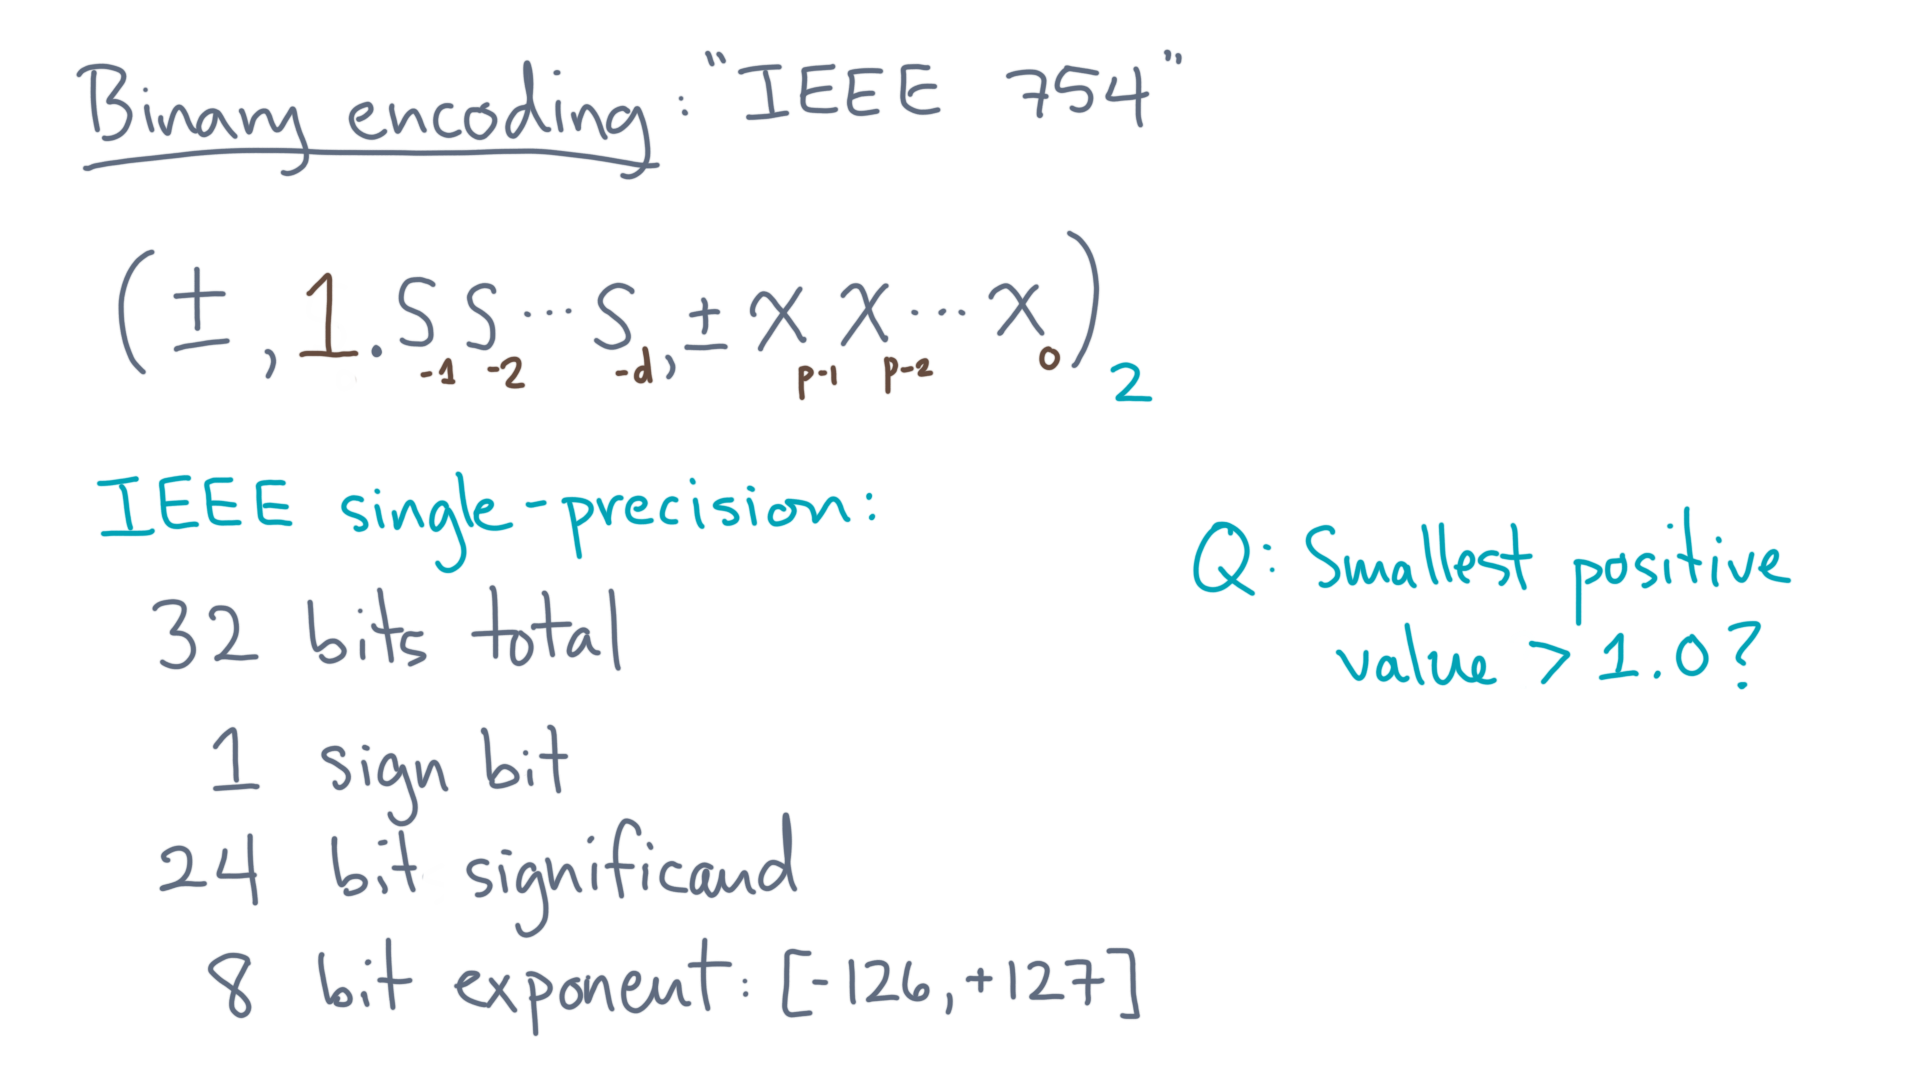 Binary encoding: "IEEE 754"
(±, 1.SS...S, ±XX...X)2
-1 -2 -d p-1 p-2 0
IEEE single-precision:
32 bits total
1 sign bit
24 bit significand
8 bit exponent: [-126, +127]
Q: Smallest positive
value > 1.0?